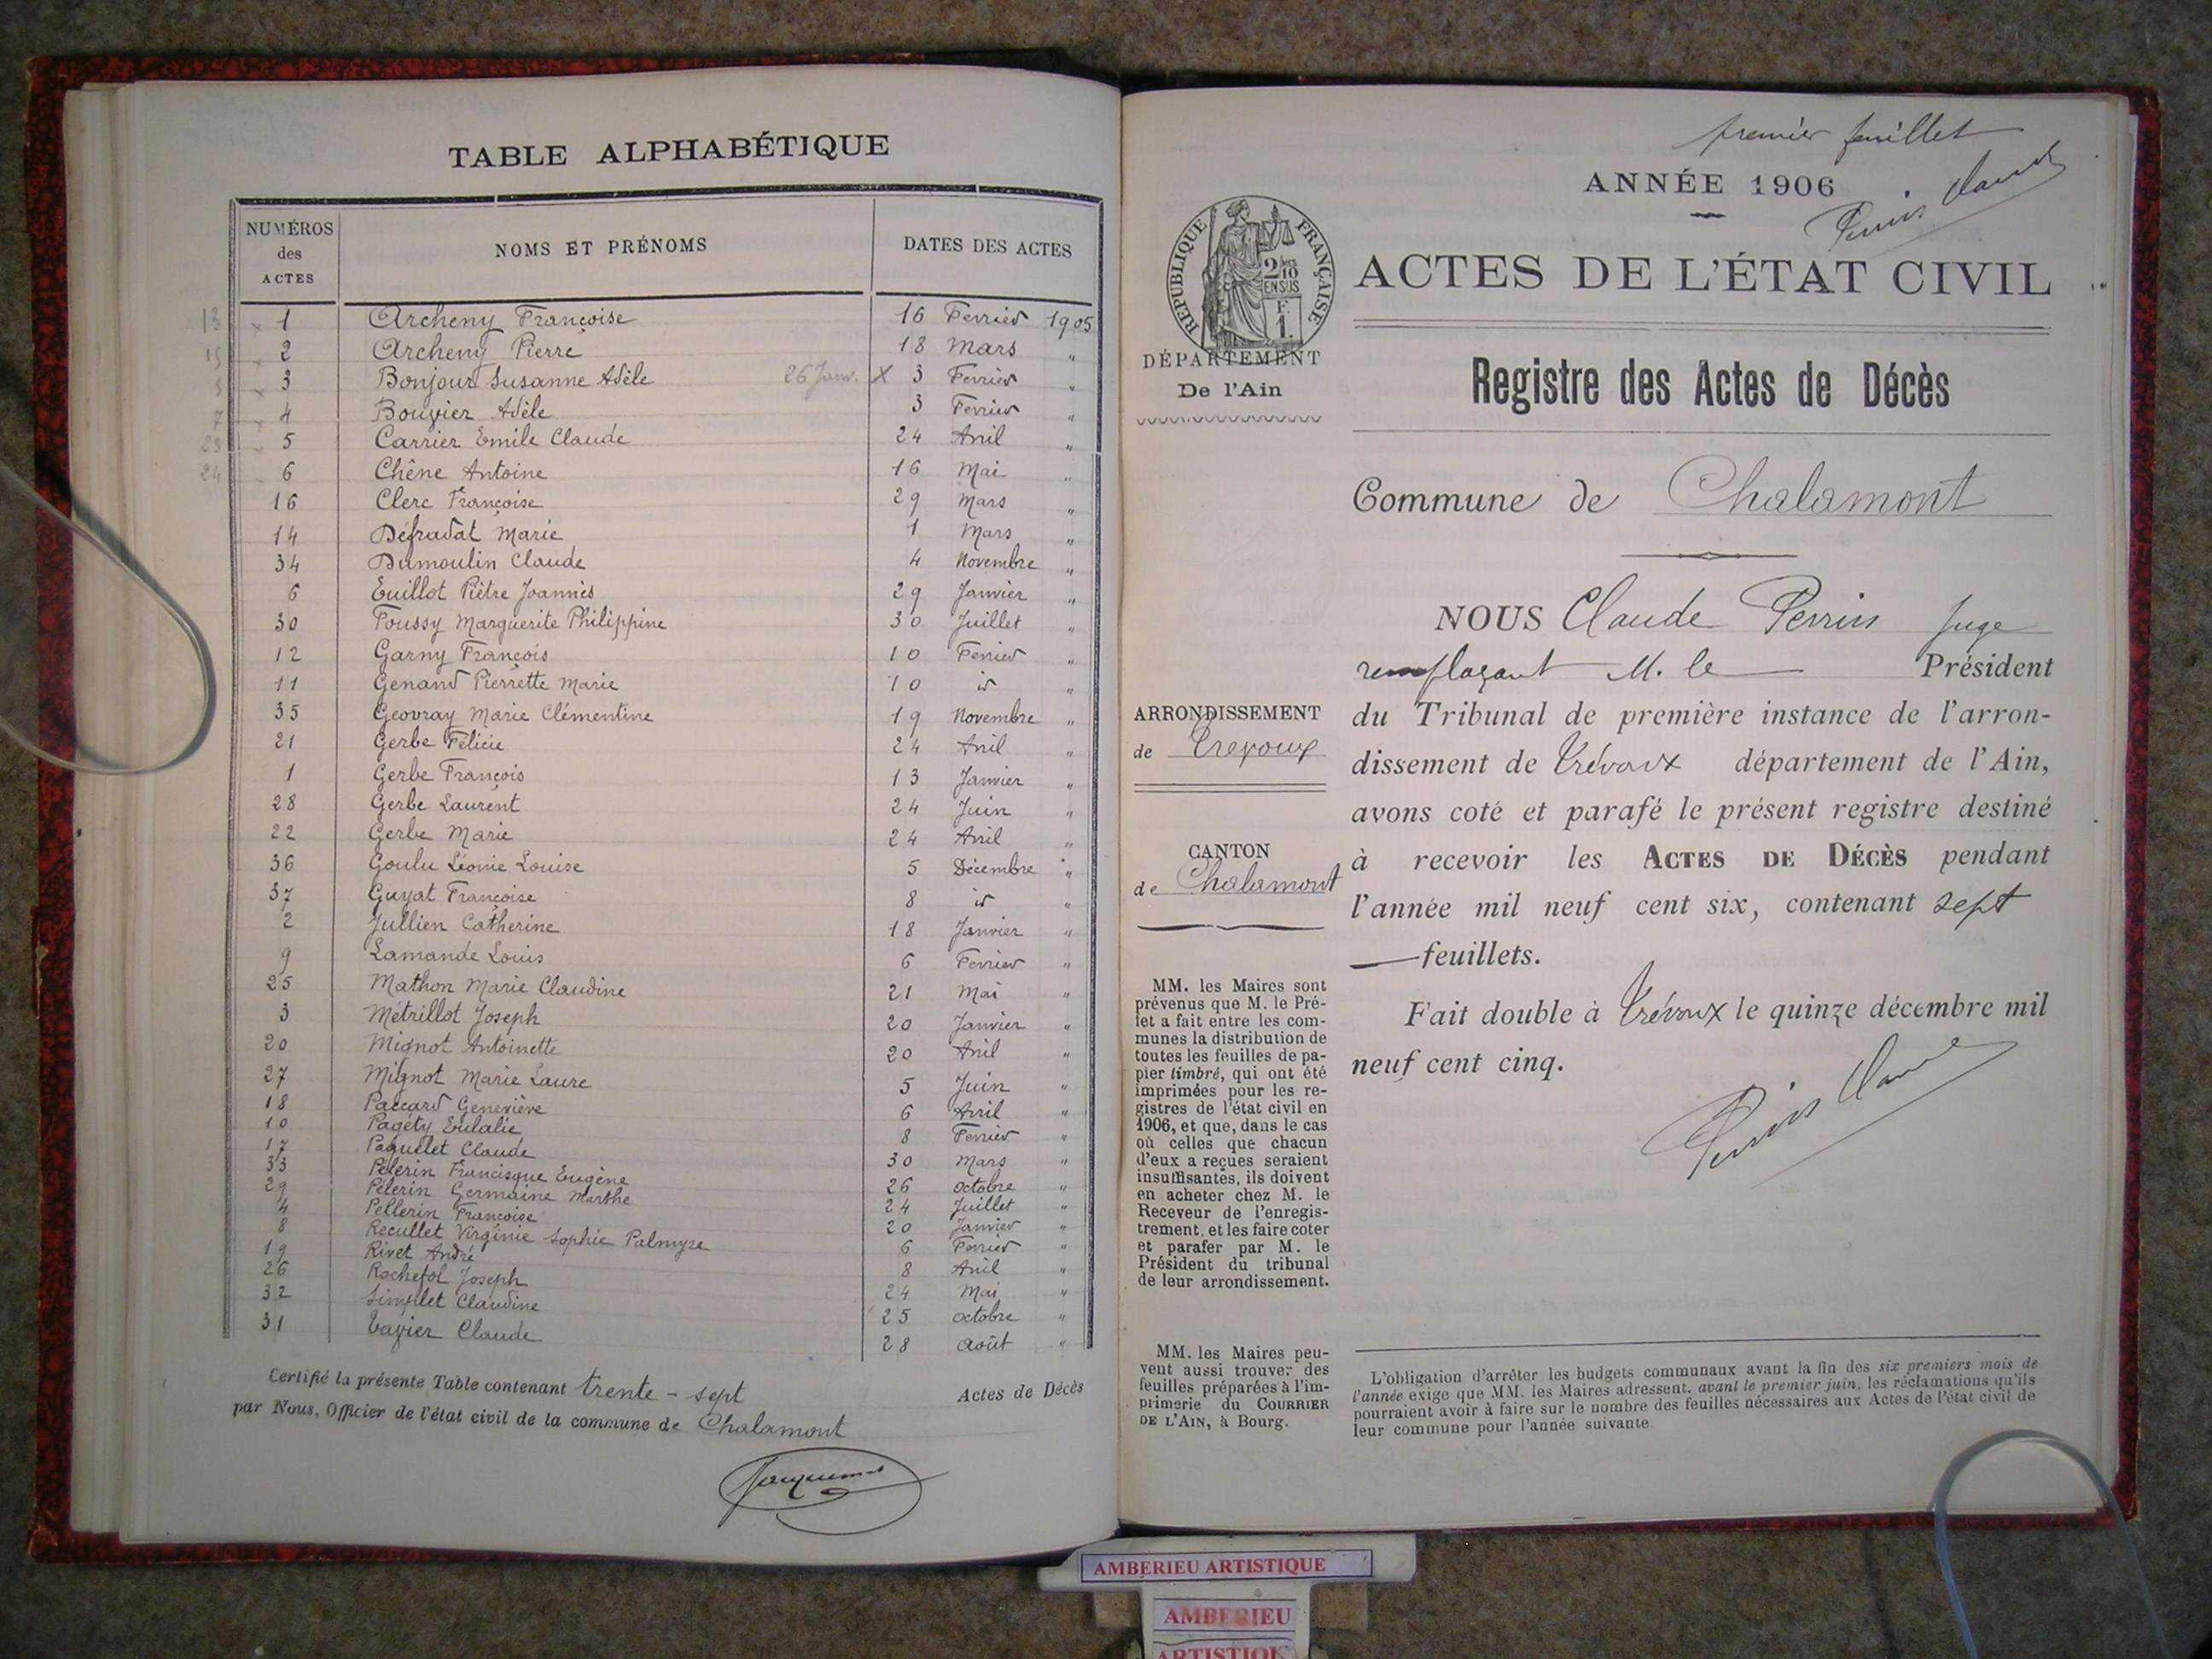 TABLE ALPHABÉTIQUE
NUMÉROS des ACTES NOMS ET PRÉNOMS DATES DES ACTES
13 x 1 Archeny Françoise 16 Fevrier 1905
15 2 Archeny Pierre 18 Mars "
5 x 3 Bonjour Susanne Adèle 26 Janv. X 3 Fevrier "
7 x 4 Bouvier Adèle 3 Fevrier "
23 x 5 Carrier Emile Claude 24 Avril "
24 6 Chêne Antoine 16 Mai "
16 Clerc Françoise 29 Mars "
14 Défradat Marie 1 Mars "
34 Dumoulin Claude 4 Novembre "
6 Euillot Piètre Joannès 29 Janvier "
30 Foussy Marguerite Philippine 30 Juillet "
12 Garny François 10 Fevrier "
11 Genand Pierrette Marie 10 id "
35 Geovray Marie Clémentine 19 Novembre "
21 Gerbe Félicie 24 Avril "
1 Gerbe François 13 Janvier "
28 Gerbe Laurent 24 Juin "
22 Gerbe Marie 24 Avril "
36 Goulu Léonie Louise 5 Décembre "
37 Guyat Françoise 8 id "
2 Jullien Catherine 18 Janvier "
9 Lamande Louis 6 Fevrier "
25 Mathon Marie Claudine 21 Mai "
3 Métrillot Joseph 20 Janvier "
20 Mignot Antoinette 20 Avril "
27 Mignot Marie Laure 5 Juin "
18 Paccard Geneviève 6 Avril "
10 Pagéty Eulalie 8 Fevrier "
17 Paquelet Claude 30 Mars "
33 Pélerin Francisque Eugène 26 Octobre "
29 Pélerin Germaine Marthe 24 Juillet "
4 Pellerin Françoise 20 Janvier "
8 Recullet Virginie Sophie Palmyre 6 Fevrier "
19 Rivet André 8 Avril "
26 Rochefol Joseph 24 Mai "
32 Simplet Claudine 25 Octobre "
31 Vayier Claude 28 Août "
Certifié la présente Table contenant trente-sept Actes de Décès
par Nous, Officier de l'état civil de la commune de Chalamont
premier feuillet
ANNÉE 1906
Perrin Claude
ACTES DE L'ÉTAT CIVIL
RÉPUBLIQUE FRANÇAISE
2/10 EN SUS
F. 1.
DÉPARTEMENT
De l'Ain
Registre des Actes de Décès
Commune de Chalamont
NOUS Claude Perrin Juge
remplaçant M. le Président
du Tribunal de première instance de l'arron-
dissement de Trévoux département de l'Ain,
avons coté et parafé le présent registre destiné
à recevoir les ACTES DE DÉCÈS pendant
l'année mil neuf cent six, contenant sept
feuillets.
Fait double à Trévoux le quinze décembre mil
neuf cent cinq.
Perrin Claude
ARRONDISSEMENT
de Trevoux
CANTON
de Chalamont
MM. les Maires sont
prévenus que M. le Pré-
fet a fait entre les com-
munes la distribution de
toutes les feuilles de pa-
pier timbré, qui ont été
imprimées pour les re-
gistres de l'état civil en
1906, et que, dans le cas
où celles que chacun
d'eux a reçues seraient
insuffisantes, ils doivent
en acheter chez M. le
Receveur de l'enregis-
trement, et les faire coter
et parafer par M. le
Président du tribunal
de leur arrondissement.
MM. les Maires peu-
vent aussi trouver des
feuilles préparées à l'im-
primerie du COURRIER
DE L'AIN, à Bourg.
L'obligation d'arrêter les budgets communaux avant la fin des six premiers mois de
l'année exige que MM. les Maires adressent, avant le premier juin, les réclamations qu'ils
pourraient avoir à faire sur le nombre des feuilles nécessaires aux Actes de l'état civil de
leur commune pour l'année suivante
AMBERIEU ARTISTIQUE
AMBERIEU